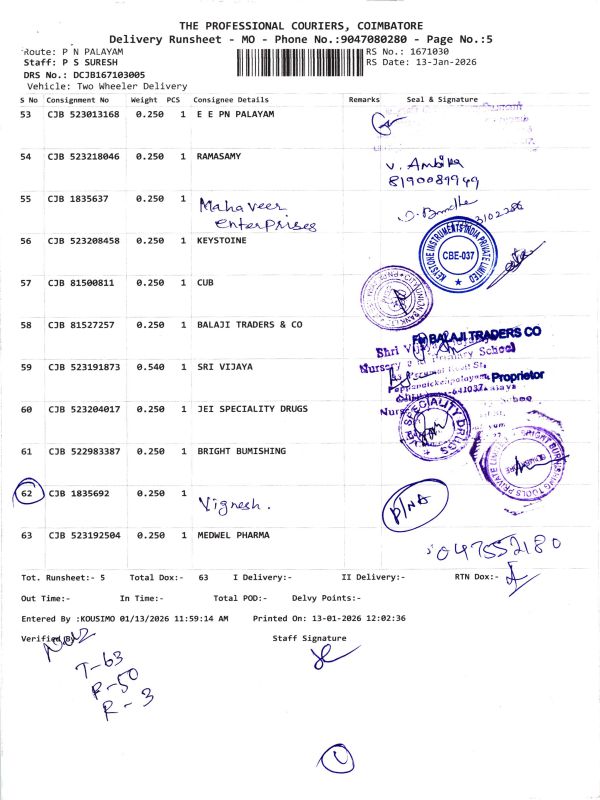 THE PROFESSIONAL COURIERS, COIMBATORE
Delivery Runsheet - MO - Phone No.:9047080280 - Page No.:5
Route: P N PALAYAM
RS No.: 1671030
Staff: P S SURESH
RS Date: 13-Jan-2026
DRS No.: DCJB167103005
Vehicle: Two Wheeler Delivery
S No Consignment No Weight PCS Consignee Details Remarks Seal & Signature
53 CJB 523013168 0.250 1 E E PN PALAYAM
54 CJB 523218046 0.250 1 RAMASAMY
V. Ambika
8190089949
55 CJB 1835637 0.250 1 Mahaveer
Enterprises
56 CJB 523208458 0.250 1 KEYSTOINE
KEYSTONE INSTRUMENTS INDIA PRIVATE LIMITED
CBE-037
57 CJB 81500811 0.250 1 CUB
58 CJB 81527257 0.250 1 BALAJI TRADERS & CO
For BALAJI TRADERS CO
Proprietor
59 CJB 523191873 0.540 1 SRI VIJAYA
Shri
Nursery & Primary School
641037
60 CJB 523204017 0.250 1 JEI SPECIALITY DRUGS
SPECIALITY DRUGS
61 CJB 522983387 0.250 1 BRIGHT BUMISHING
BRIGHT BURNISHING TOOLS PRIVATE
62 CJB 1835692 0.250 1 Vignesh.
P/NA
63 CJB 523192504 0.250 1 MEDWEL PHARMA
Tot. Runsheet:- 5 Total Dox:- 63 I Delivery:- II Delivery:- RTN Dox:-
Out Time:- In Time:- Total POD:- Delvy Points:-
Entered By :KOUSIMO 01/13/2026 11:59:14 AM Printed On: 13-01-2026 12:02:36
Verified By
Staff Signature
T-63
R-3